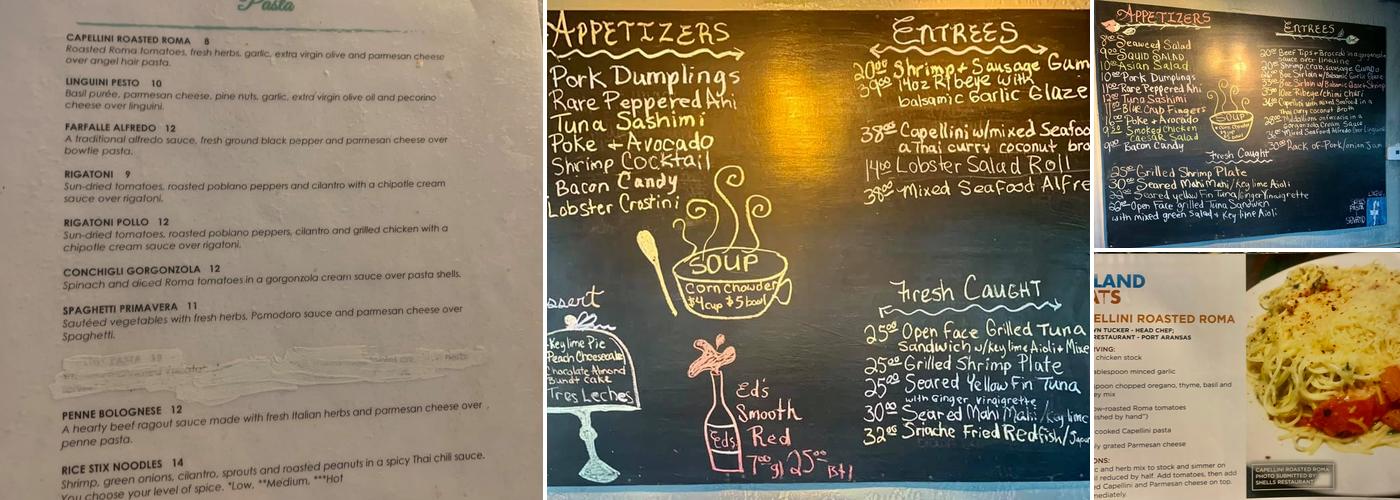 Pasta
CAPELLINI ROASTED ROMA 8
Roasted Roma tomatoes, fresh herbs, garlic, extra virgin olive and parmesan cheese
over angel hair pasta.
LINGUINI PESTO 10
Basil purée, parmesan cheese, pine nuts, garlic, extra virgin olive oil and pecorino
cheese over linguini.
FARFALLE ALFREDO 12
A traditional alfredo sauce, fresh ground black pepper and parmesan cheese over
bowtie pasta.
RIGATONI 9
Sun-dried tomatoes, roasted poblano peppers and cilantro with a chipotle cream
sauce over rigatoni.
RIGATONI POLLO 12
Sun-dried tomatoes, roasted poblano peppers, cilantro and grilled chicken with a
chipotle cream sauce over rigatoni.
CONCHIGLI GORGONZOLA 12
Spinach and diced Roma tomatoes in a gorgonzola cream sauce over pasta shells.
SPAGHETTI PRIMAVERA 11
Sautéed vegetables with fresh herbs, Pomodoro sauce and parmesan cheese over
Spaghetti.
PENNE BOLOGNESE 12
A hearty beef ragout sauce made with fresh Italian herbs and parmesan cheese over
penne pasta.
RICE STIX NOODLES 14
Shrimp, green onions, cilantro, sprouts and roasted peanuts in a spicy Thai chili sauce.
You choose your level of spice. *Low, **Medium, ***Hot
APPETIZERS
Pork Dumplings
Rare Peppered Ahi
Tuna Sashimi
Poke + Avocado
Shrimp Cocktail
Bacon Candy
Lobster Crostini
SOUP
Corn Chowder
$4 cup $5 bowl
ssert
Key lime Pie
Peach Cheesecake
Chocolate Almond
Bundt Cake
Tres Leches
Eds
Ed's
Smooth
Red
7.00 gl 25.00 Btl
ENTREES
20.00 Shrimp + Sausage Gum
39.00 14oz Ribeye with
balsamic Garlic Glaze
38.00 Capellini w/mixed Seafoo
a Thai curry coconut bro
14.00 Lobster Salad Roll
38.00 Mixed Seafood Alfre
Fresh Caught
25.00 Open Face Grilled Tuna
Sandwich w/key lime Aioli + Mixe
25.00 Grilled Shrimp Plate
25.00 Seared Yellow Fin Tuna
with Ginger Vinaigrette
30.00 Seared Mahi Mahi/key lime
32.00 Sriache Fried Redfish/Japa
APPETIZERS
Seaweed Salad
Squid SALAD
Asian Salad
Pork Dumplings
Rare Peppered Ahi
Tuna Sashimi
Blue Crab Fingers
Poke + Avocado
Smoked Chicken
Caesar Salad
Bacon Candy
SOUP
ENTREES
Beef Tips + Broccoli in a gorgonzola
Sauce over linguine
Shrimp, crab, sausage Gumbo
8oz Sirloin w/Balsamic Garlic Glaze
8oz Sirloin w/Balsamic Garlic + Shrimp
Capellini with mixed Seafood in a
Thai curry coconut Broth
Gorgonzola Cream Sauce
Mixed Seafood Alfredo over Linguini
Rack of Pork/onion Jam
Fresh Caught
25.00 Grilled Shrimp Plate
30.00 Seared Mahi Mahi/Key lime Aioli
Seared yellow Fin Tuna/Ginger Vinaigrette
Open Face grilled Tuna Sandwich
with mixed green Salad + Key lime Aioli
LAND
ATS
PELLINI ROASTED ROMA
WN TUCKER - HEAD CHEF;
RESTAURANT - PORT ARANSAS
RVING:
chicken stock
ablespoon minced garlic
spoon chopped oregano, thyme, basil and
ey mix
ow-roasted Roma tomatoes
ished by hand")
cooked Capellini pasta
ly grated Parmesan cheese
ONS:
c and herb mix to stock and simmer on
il reduced by half. Add tomatoes, then add
d Capellini and Parmesan cheese on top.
mediately.
CAPELLINI ROASTED ROMA
PHOTO SUBMITTED BY
SHELLS RESTAURANT